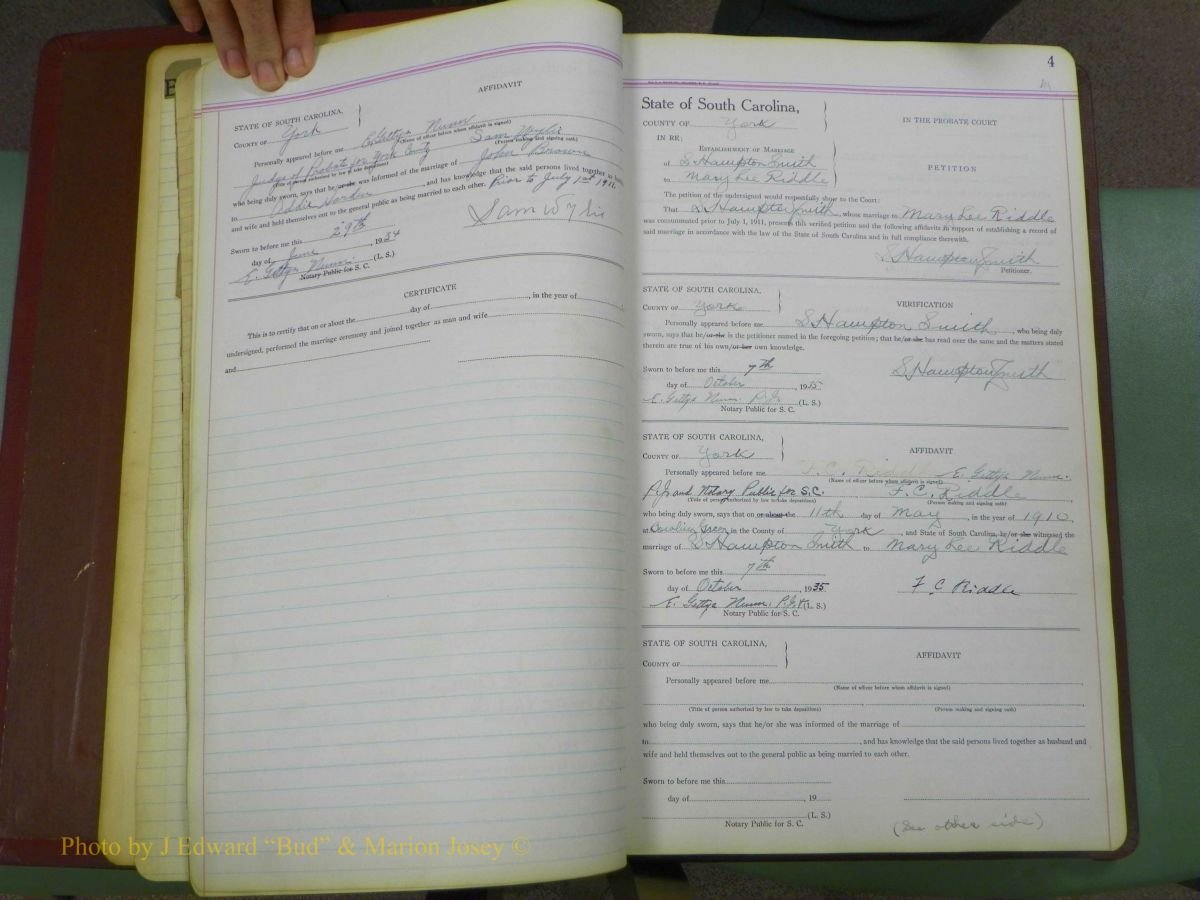 AFFIDAVIT
STATE OF SOUTH CAROLINA,
COUNTY OF York
Personally appeared before me E. Gettys Nunn Sam Wylie
(Name of officer before whom affidavit is signed) (Person making and signing oath)
Judge of Probate for York County
(Title of person authorized by law to take depositions)
who being duly sworn, says that he/or she was informed of the marriage of John Brown
to Addie Hardin, and has knowledge that the said persons lived together as
and wife and held themselves out to the general public as being married to each other. Prior to July 1st 1911.
Sam Wylie
Sworn to before me this 29th
day of June, 1934
E. Gettys Nunn. (L. S.)
Notary Public for S. C.
CERTIFICATE
This is to certify that on or about the day of , in the year of
undersigned, performed the marriage ceremony and joined together as man and wife
and
4
State of South Carolina,
COUNTY OF York
IN THE PROBATE COURT
IN RE:
ESTABLISHMENT OF MARRIAGE
of S. Hampton Smith
to Mary Lee Riddle
PETITION
The petition of the undersigned would respectfully show to the Court:
That S. Hampton Smith, whose marriage to Mary Lee Riddle
was consummated prior to July 1, 1911, presents this verified petition and the following affidavits in support of establishing a record of
said marriage in accordance with the law of the State of South Carolina and in full compliance therewith.
S. Hampton Smith
Petitioner.
STATE OF SOUTH CAROLINA,
COUNTY OF York
VERIFICATION
Personally appeared before me S. Hampton Smith, who being duly
sworn, says that he/or she is the petitioner named in the foregoing petition; that he/or she has read over the same and the matters stated
therein are true of his own/or her own knowledge.
Sworn to before me this 7th
S. Hampton Smith
day of October, 1935
E. Gettys Nunn. P.J. (L. S.)
Notary Public for S. C.
STATE OF SOUTH CAROLINA,
COUNTY OF York
AFFIDAVIT
Personally appeared before me F. C. Riddle E. Gettys Nunn.
(Name of officer before whom affidavit is signed)
P.J. and Notary Public for S.C. F. C. Riddle
(Title of person authorized by law to take depositions) (Person making and signing oath)
who being duly sworn, says that on or about the 11th day of May, in the year of 1910,
at Carolina Green in the County of York, and State of South Carolina, he/or she witnessed the
marriage of S. Hampton Smith to Mary Lee Riddle
Sworn to before me this 7th
day of October, 1935
F C Riddle
E. Gettys Nunn. (L. S.)
Notary Public for S. C.
STATE OF SOUTH CAROLINA,
COUNTY OF
AFFIDAVIT
Personally appeared before me
(Name of officer before whom affidavit is signed)
(Title of person authorized by law to take depositions) (Person making and signing oath)
who being duly sworn, says that he/or she was informed of the marriage of
to , and has knowledge that the said persons lived together as husband and
wife and held themselves out to the general public as being married to each other.
Sworn to before me this
day of , 19
(L. S.)
Notary Public for S. C.
(See other side)
Photo by J Edward “Bud” & Marion Josey ©